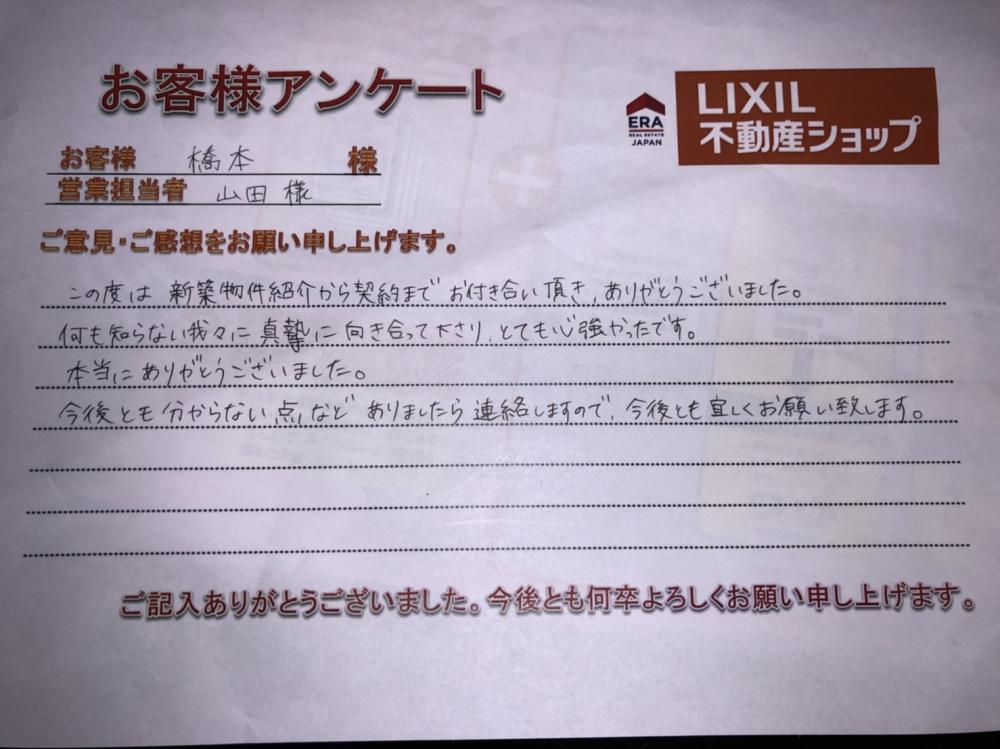 お客様アンケート
ERA
REAL ESTATE
JAPAN
LIXIL
不動産ショップ
お客様 橋本 様
営業担当者 山田 様
ご意見・ご感想をお願い申し上げます。
この度は 新築物件紹介から契約まで お付き合い頂き、ありがとうございました。
何も知らない我々に 真摯に 向き合って下さり、とても心強かったです。
本当にありがとうございました。
今後とも 分からない点などありましたら 連絡しますので、今後とも宜しくお願い致します。
ご記入ありがとうございました。今後とも何卒よろしくお願い申し上げます。